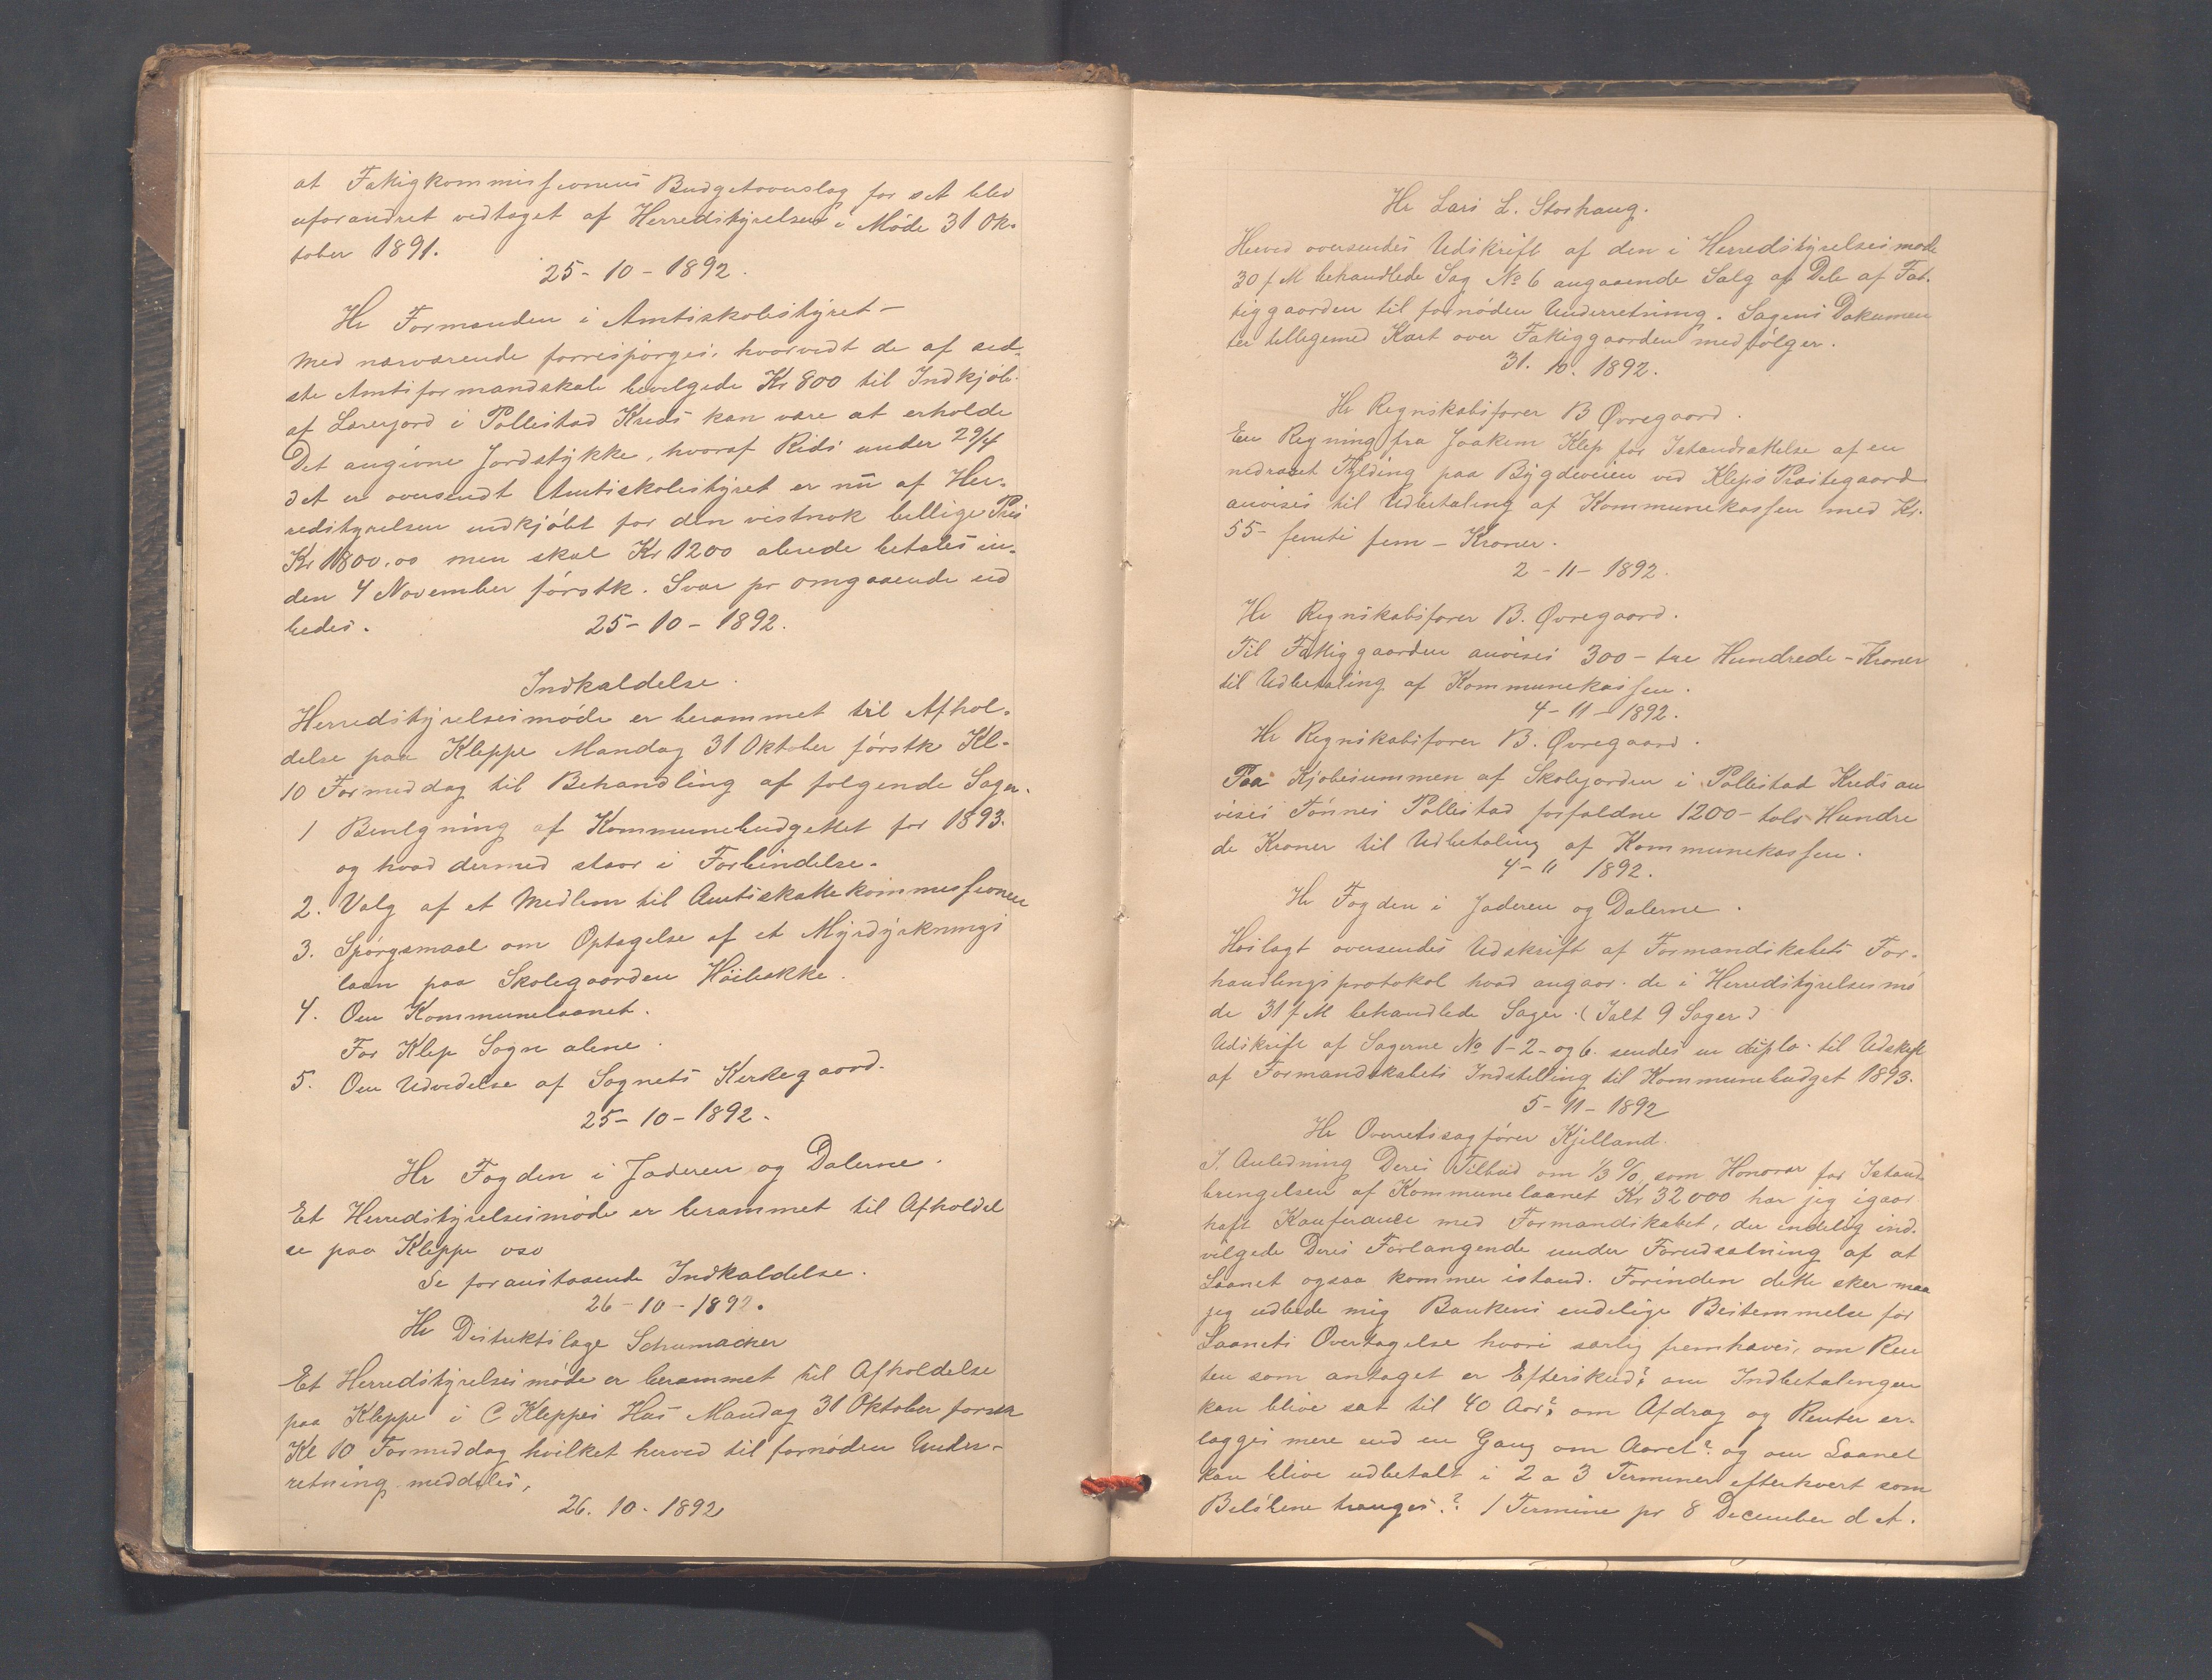 at Fattigkommissionens Budgetoverslag for d A blev
uforandret vedtaget af Herredstyrelsen i Møde 31 Ok-
tober 1891.
25-10-1892.
Hr Formanden i Amtsskolestyret -
Med nærværende forrespørges, hvorvidt de af sid-
ste Amtsformandskab bevilgede Kr 800 til Indkjøb
af Lærerjord i Pollestad Kreds kan være at erholde
Det angivne Jordstykke, hvoraf Rids under 29/4
d A er oversendt Amtsskolestyret er nu af Her-
redstyrelsen indkjøbt for den vistnok billige Pris
Kr 1800.00 men skal Kr 1200 alerede betales in-
den 4 November førstk. Svar pr omgaaende ud
bedes.
25-10-1892.
Indkaldelse.
Herredstyrelsesmøde er berammet til Afhol-
delse paa Kleppe Mandag 31 Oktober førstk Kl-
10 Formiddag til Behandling af følgende Sager.
1 Bevilgning af Kommunebudgettet for 1893.
og hvad dermed staar i Forbindelse.
2. Valg af et Medlem til Amtsskattekommissionen
3. Spørgsmaal om Optagelse af et Myrdyrknings
laan paa Skolegaarden Høibakke.
4. Om Kommunelaanet.
For Klep Sogn alene.
5. Om Udvidelse af Sognets Kirkegaard.
25-10-1892.
Hr Fogden i Jæderen og Dalerne.
Et Herredstyrelsesmøde er berammet til Afholdel
se paa Kleppe osv
Se foranstaaende Indkaldelse.
26-10-1892.
Hr Distriktslæge Schumacker
Et Herredstyrelsesmøde er berammet til Afholdelse
paa Kleppe i C Kleppes Hus Mandag 31 Oktober førstk
Kl 10 Formiddag hvilket herved til fornøden Under-
retning meddeles,
26. 10. 1892
Hr Lars L. Storhaug.
Herved oversendes Udskrift af den i Herredstyrelsesmøde
30 f M behandlede Sag No 6 angaaende Salg af Dele af Fat-
tiggaarden til fornøden Underretning. Sagens Dokumen
ter tilligemed Kart over Fattiggaarden medfølger.
31. 10. 1892.
Hr Regnskabsfører B Øvregaard.
En Regning fra Joakem Klep for Istandsættelse af en
nedraset Fylding paa Bygdeveien ved Kleps Præstegaard
anvises til Udbetaling af Kommunekassen med Kr.
55- femti fem - Kroner.
2-11-1892.
Hr Regnskabsfører B. Øvregaard.
Til Fattiggaarden anvises 300- tre Hundrede - Kroner
til Udbetaling af Kommunekassen.
4-11-1892.
Hr Regnskabsfører B. Øvregaard.
Paa Kjøbesummen af Skolejorden i Pollestad Kreds an
vises Tønnes Pollestad forfaldne 1200- tolv Hundre
de Kroner til Udbetaling af Kommunekassen.
4-11 1892.
Hr Fogden i Jæderen og Dalerne.
Hoslagt oversendes Udskrift af Formandskabets For-
handlingsprotokol hvad angaar de i Herredstyrelsesmø
de 31 f M behandlede Sager. (Ialt 9 Sager)
Udskrift af Sagerne No 1-2- og 6. sendes in duplo. til Udskrift
af Formandskabets Indstilling til Kommunebudget 1893.
5-11-1892
Hr Overretssagfører Kjelland.
I Anledning Deres Tilbud om 1/3 % som Honorar for Istand
bringelsen af Kommunelaanet Kr 32000 har jeg igaar
haft Konferance med Formandskabet, der endelig ind-
vilgede Deres Forlangende under Forudsætning af at
Laanet ogsaa kommer istand. Forinden dette sker maa
jeg udbede mig Bankens endelige Bestemmelse for
Laanets Overtagelse hvori særlig fremhæves, om Ren
ten som antaget er Efterskud? om Indbetalingen
kan blive sat til 40 Aar? om Afdrag og Renter er-
lægges mere end en Gang om Aaret? og om Laanet
kan blive udbetalt i 2 a 3 Terminer efterhvert som
Beløbene trænges? 1 Termine pr 8 December d A.